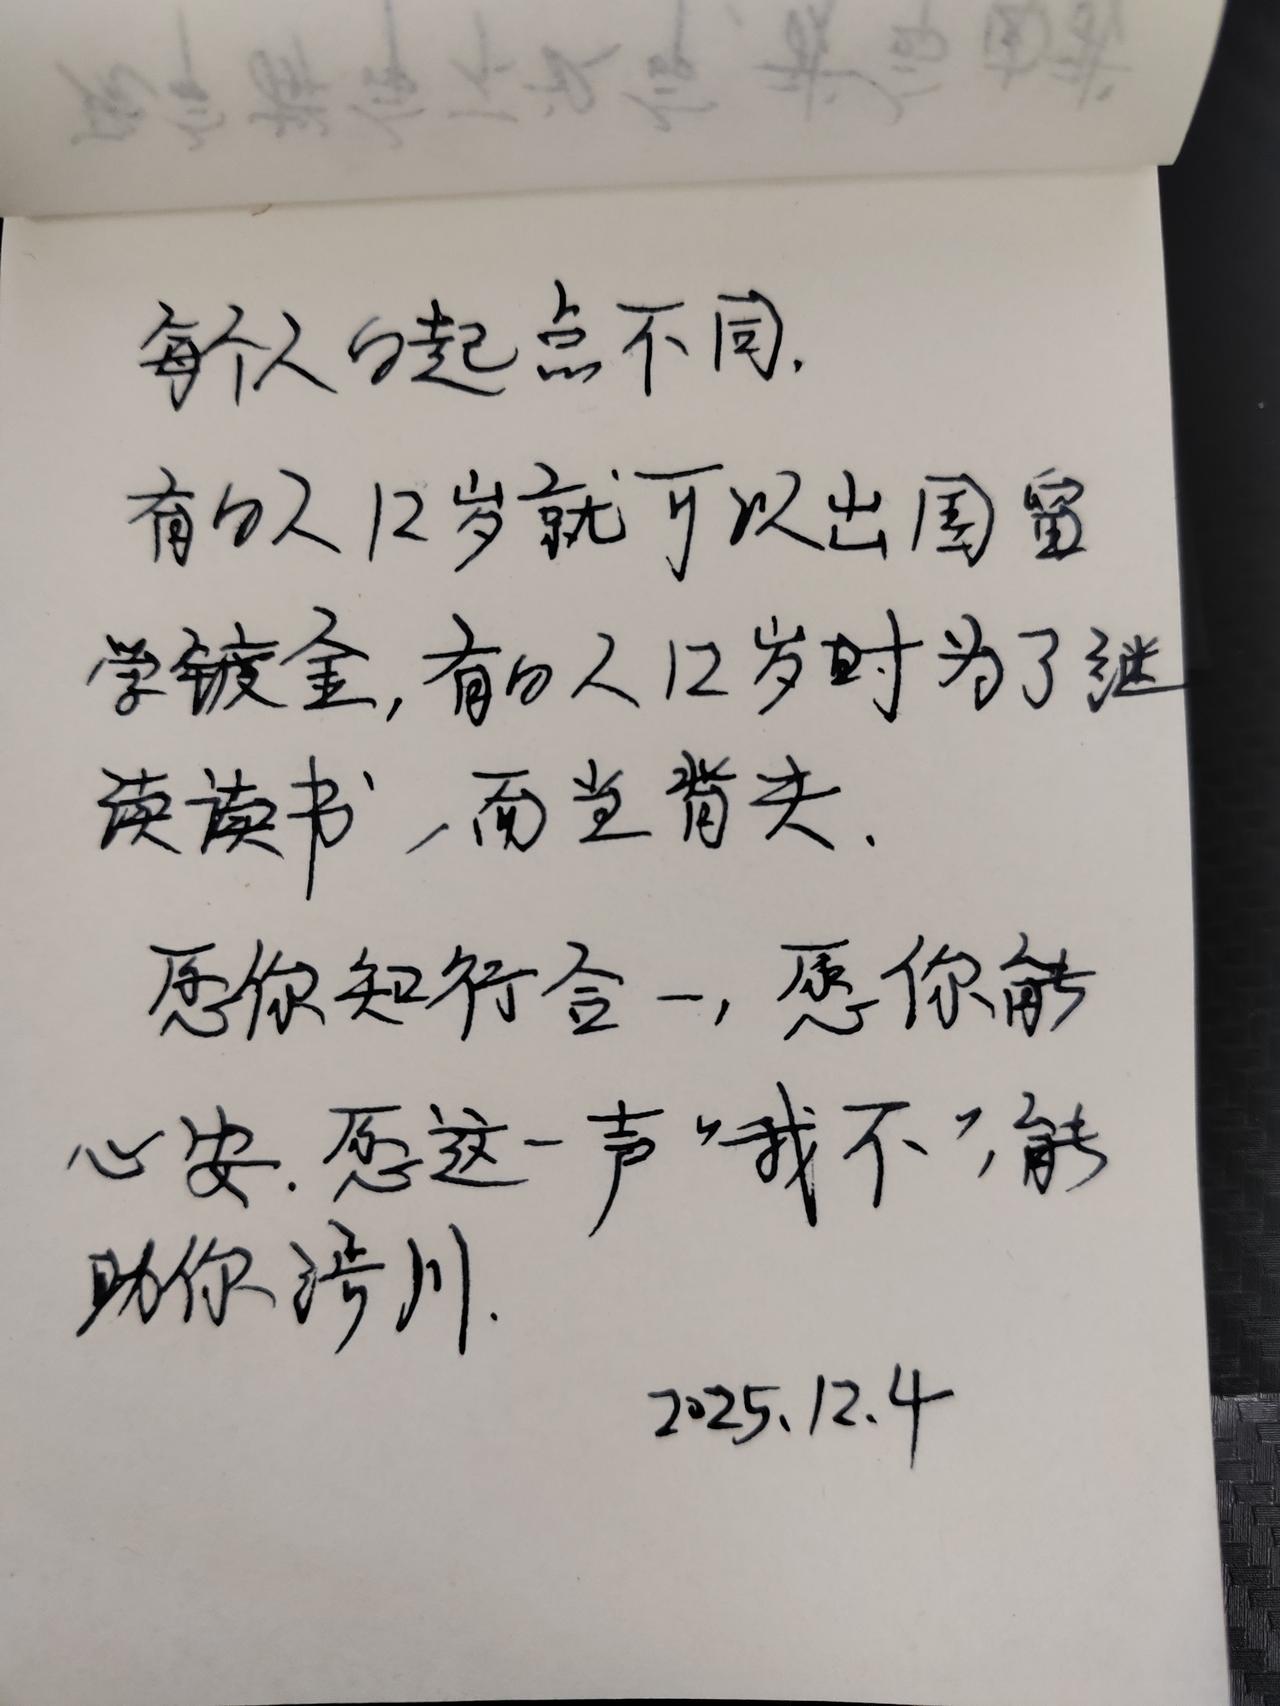 每个人的起点不同.
有的人12岁就可以出国留
学镀金,有的人12岁时为了继
读读书,而当背夫.
愿你知行合一,愿你能
心安.愿这一声“我不”,能
助你济川.
2025.12.4